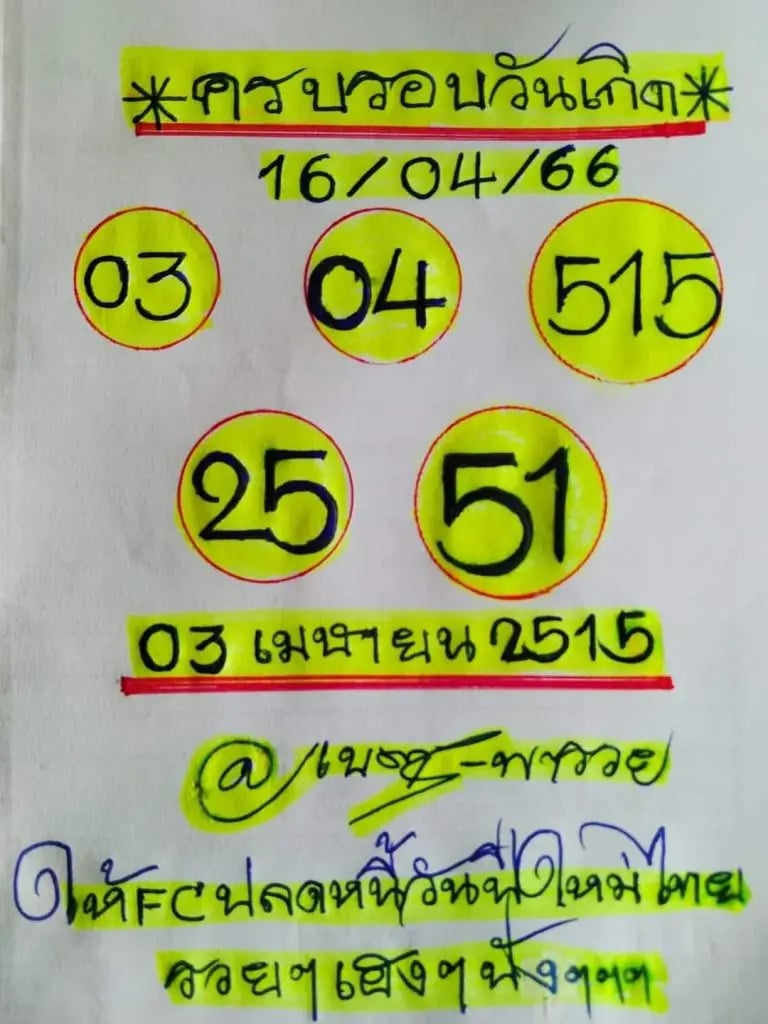 *ครบรอบวันเกิด*
16/04/66
03 04 515
25 51
03 เมษายน 2515
@เบชร-พารวย
ให้FCปลดหนี้วันปีใหม่ไทย
รวยๆเฮงๆปังๆๆๆ